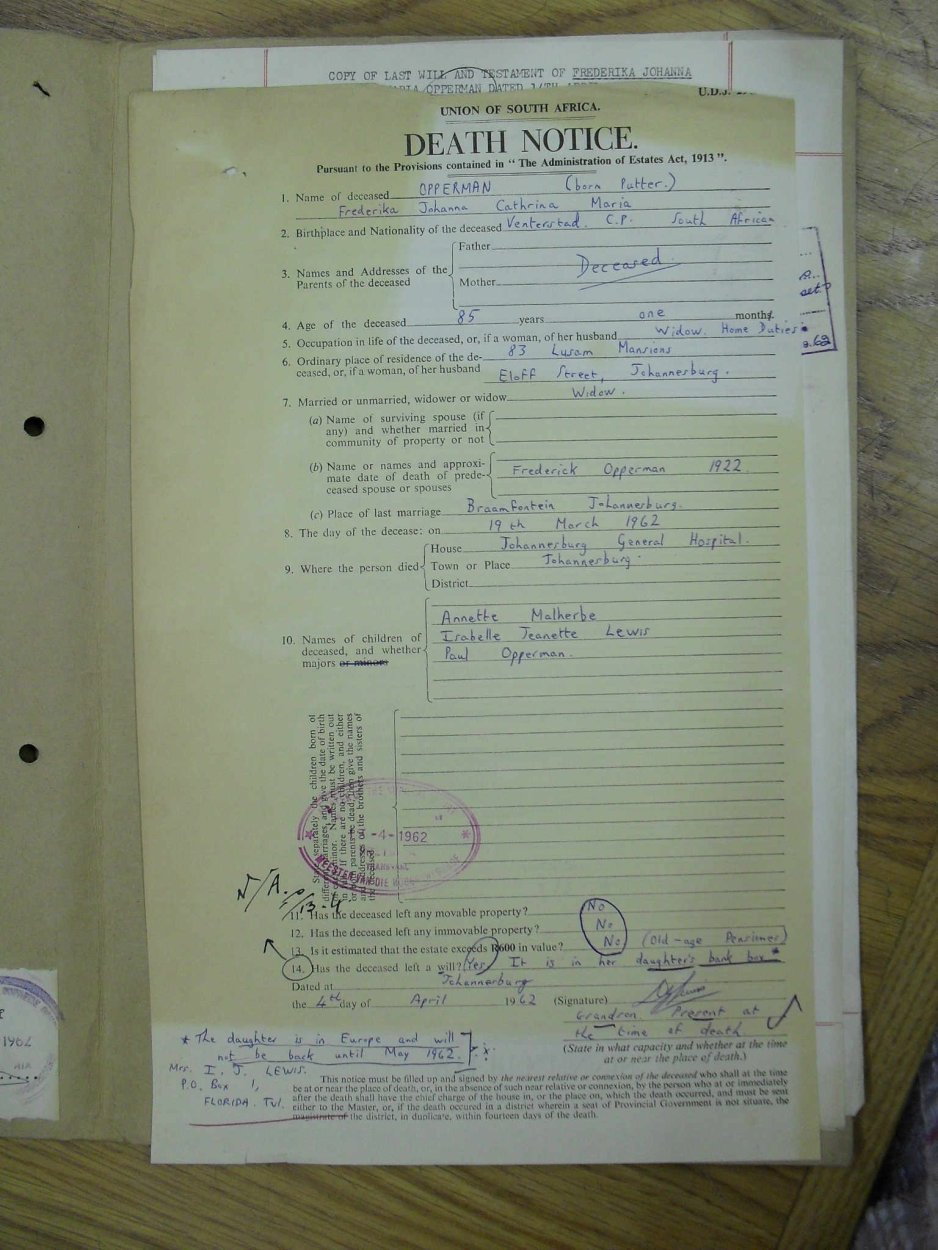 COPY OF LAST WILL AND TESTAMENT OF FREDERIKA JOHANNA
OPPERMAN DATED
UNION OF SOUTH AFRICA.
DEATH NOTICE.
Pursuant to the Provisions contained in "The Administration of Estates Act, 1913".
1. Name of deceased OPPERMAN (born Putter.)
Frederika Johanna Cathrina Maria
2. Birthplace and Nationality of the deceased Venterstad. C.P. South African
3. Names and Addresses of the Parents of the deceased
Father
Deceased.
Mother
4. Age of the deceased 85 years one months.
5. Occupation in life of the deceased, or, if a woman, of her husband Widow. Home Duties
6. Ordinary place of residence of the de- 83 Lusam Mansions
ceased, or, if a woman, of her husband Eloff Street, Johannesburg.
7. Married or unmarried, widower or widow Widow.
(a) Name of surviving spouse (if
any) and whether married in
community of property or not
(b) Name or names and approxi-
mate date of death of prede- Frederick Opperman 1922
ceased spouse or spouses
(c) Place of last marriage Braamfontein Johannesburg.
8. The day of the decease: on 19th March 1962
9. Where the person died
House Johannesburg General Hospital.
Town or Place Johannesburg
District
10. Names of children of
deceased, and whether
majors or minors
Annette Malherbe
Isabelle Jeanette Lewis
Paul Opperman.
-4-1962
TRANSVAAL
N/A.
13-4
11. Has the deceased left any movable property? No
12. Has the deceased left any immovable property? No
13. Is it estimated that the estate exceeds R600 in value? No (Old-age Pensioner)
14. Has the deceased left a will? Yes. It is in her daughter's bank box *
Dated at Johannesburg
the 4th day of April 1962 (Signature)
Grandson Present at
the time of death.
(State in what capacity and whether at the time
at or near the place of death.)
* The daughter is in Europe and will
not be back until May 1962.
Mrs. I. J. LEWIS.
P.O. Box 1,
FLORIDA. Tvl.
This notice must be filled up and signed by the nearest relative or connexion of the deceased who shall at the time
be at or near the place of death, or, in the absence of such near relative or connexion, by the person who at or immediately
after the death shall have the chief charge of the house in, or the place on, which the death occurred, and must be sent
either to the Master, or, if the death occured in a district wherein a seat of Provincial Government is not situate, the
magistrate of the district, in duplicate, within fourteen days of the death.